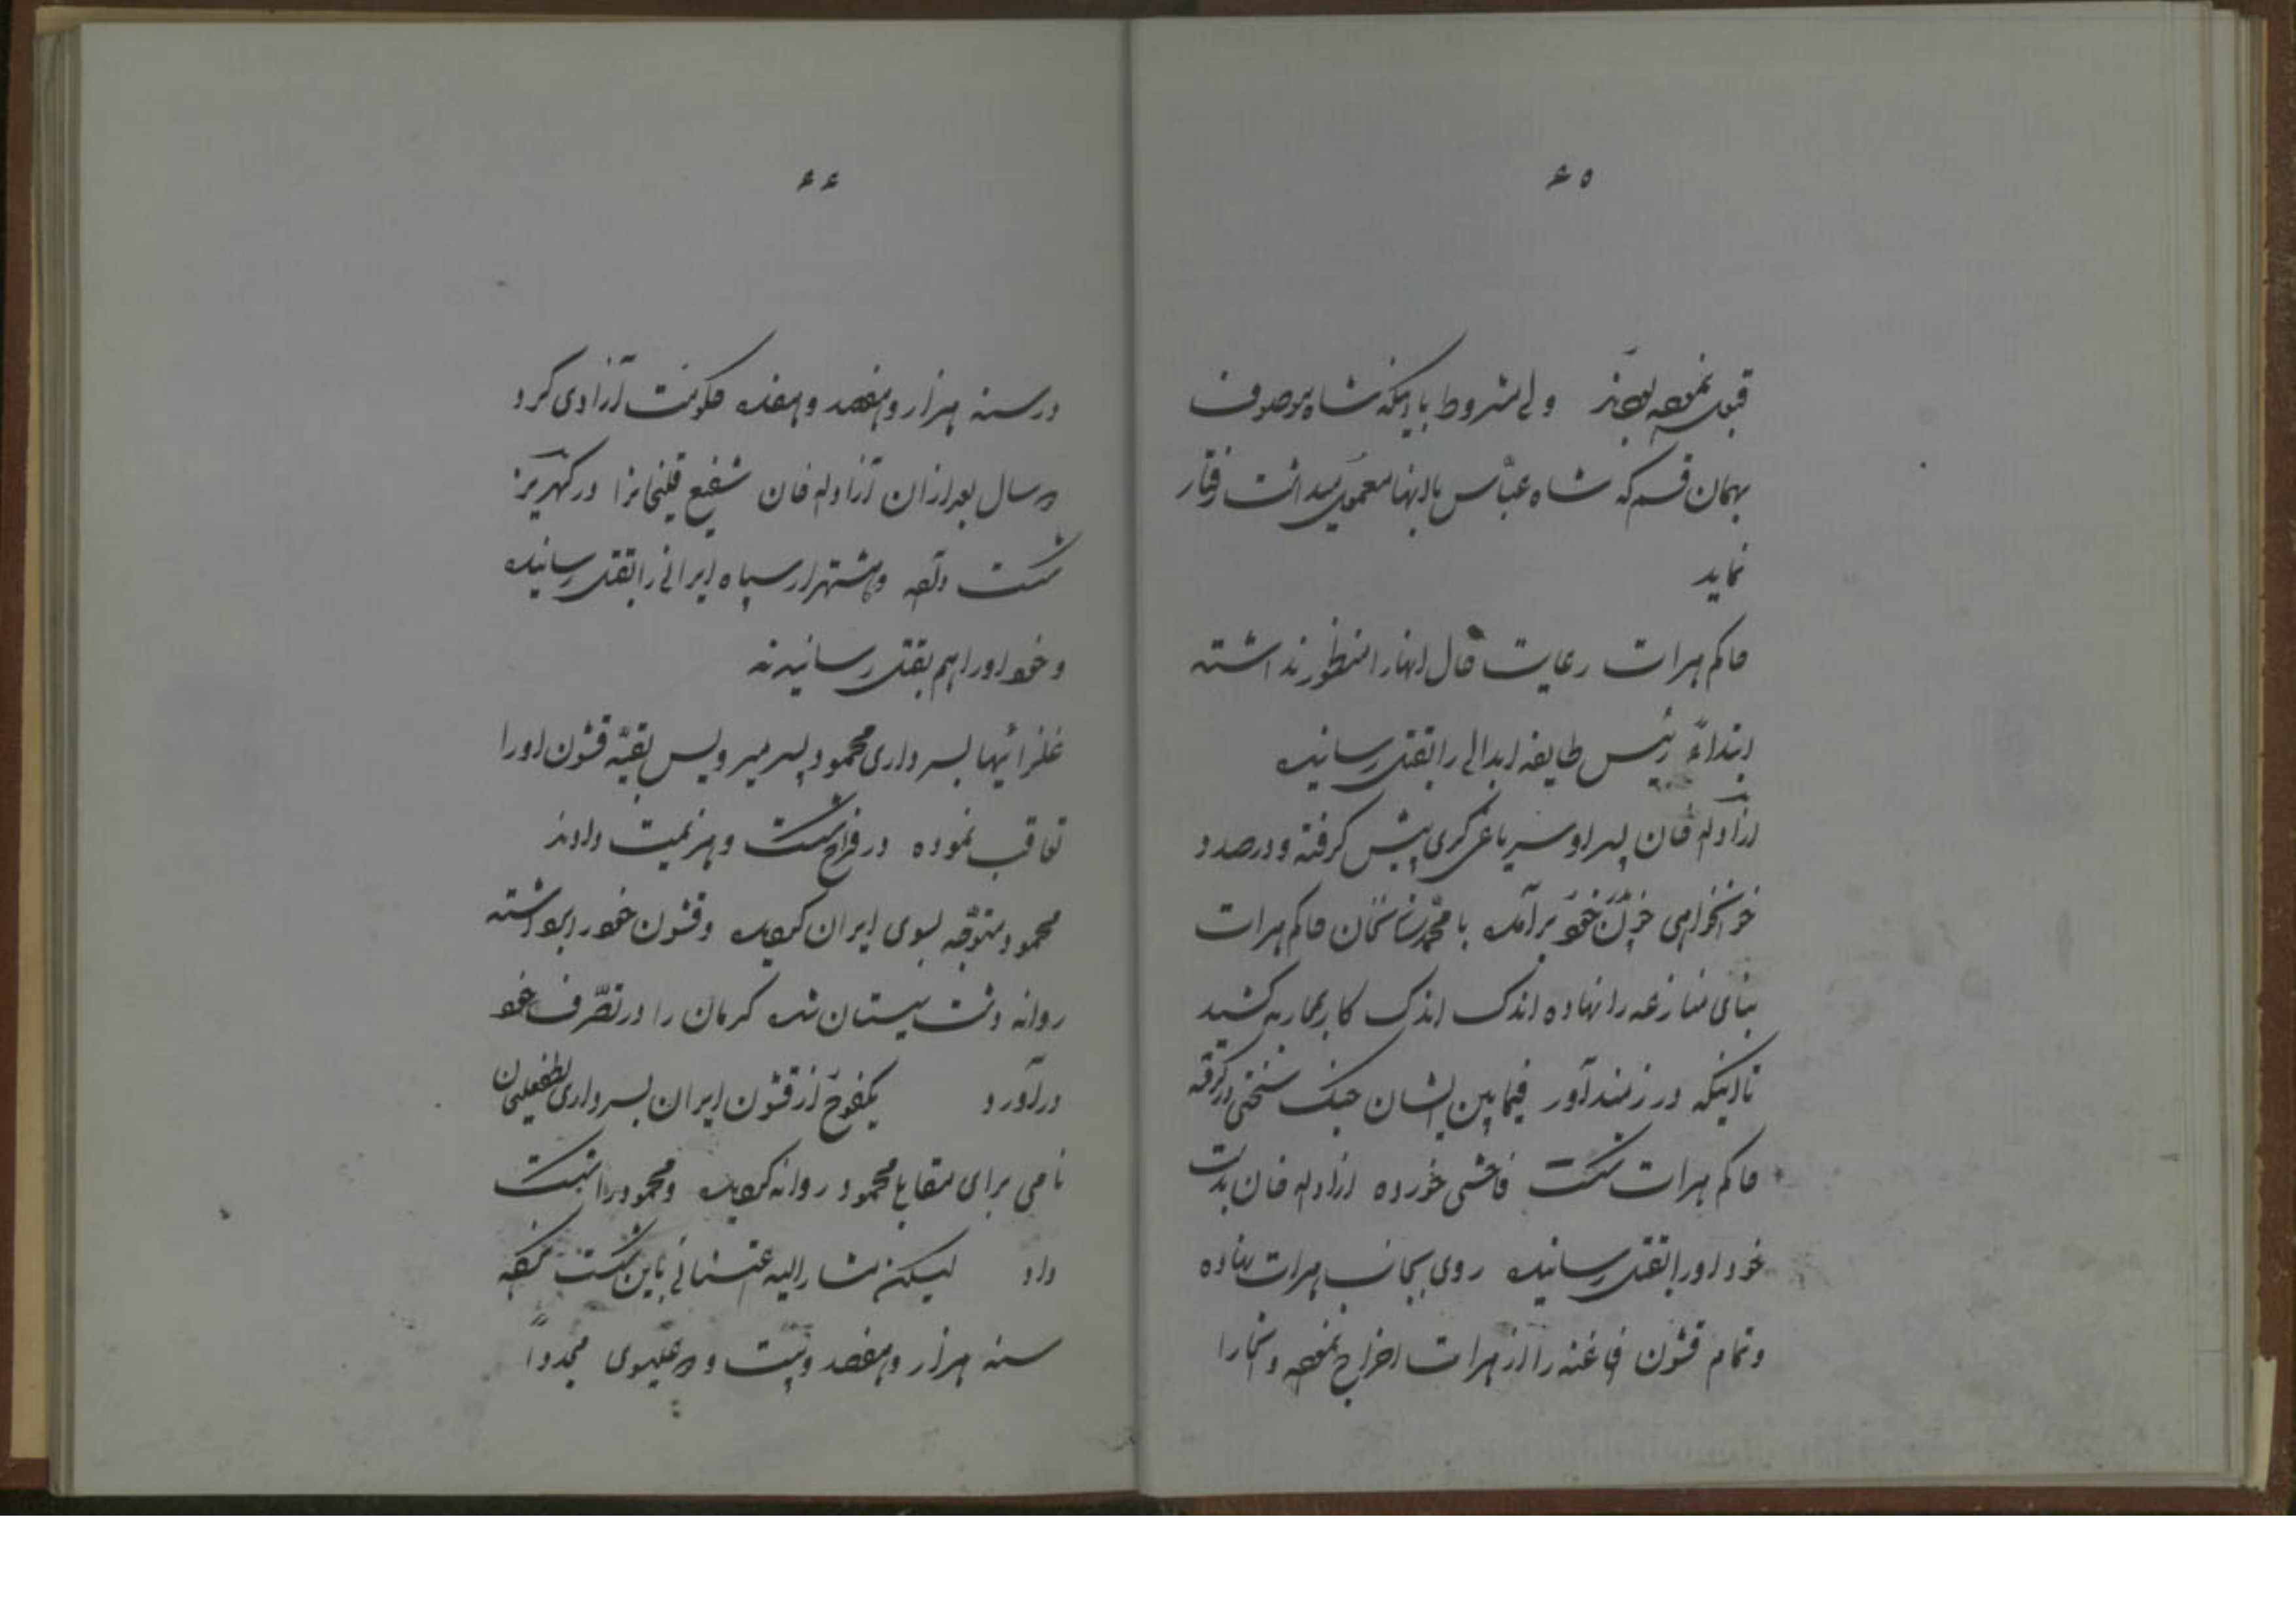 ۶۵
قبول نموده بودند ولی مشروط باینکه شاه موصوف
بهمان قسم که شاه عباس باینها معمول میداشت رفتار
نماید
حاکم هرات رعایت حال انها را منظور نداشته
ابتداءً رئیس طایفه ابدالی را بقتل رسانیده
ازادله خان پسر او سر یاغی‌گری پیش گرفته و درصدد
خونخواهی خون خود برآمده با محمد زمانخان حاکم هرات
بنای منازعه را نهاده اندک اندک کار بمحاربه کشید
تا اینکه در زمند آور فیمابین ایشان جنک سختی درگرفته
حاکم هرات شکست فاحشی خورده ازادله خان بدست
خود او را بقتل رسانیده روی بجانب هرات نهاده
و تمام قشون افاغنه را از هرات اخراج نموده و انجا را
۶۶
در سنه هزار و هفصد و هفده حکومت آزادی کرد
دو سال بعد از ان آزادله خان شفیع قلیخانرا در کهریز
شکست داده و هشتهزار سپاه ایرانی را بقتل رسانیده
و خود او را هم بقتل رسانیدند
غلزائیها بسرداری محمود پسر میر ویس بقیّه قشون او را
تعاقب نموده در فراه شکست و هزیمت دادند
محمود متوجّه بسوی ایران گردیده و قشون خود را برداشته
روانه دشت سیستان شده کرمان را در تصّرف خود
درآورد یکفوج از قشون ایران بسرداری لطفعلیخان
نامی برای مقابل محمود روانه گردیده و محمود را شکست
داد لیکن مشارالیه اعتنائی باین شکست نکرده
سنه هزار و هفصد و بیست و دو عیسوی مجدداً